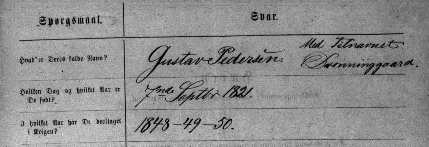 Spørgsmaal. Svar.
Hvad er Deres fulde Navn? Gustav Pedersen. Med Tilnavnet
Svenninggaard.
Hvilken Dag og hvilket Aar er
De født? 7nde Septbr 1821.
I hvilket Aar har De deeltaget
i Krigen? 1848-49-50.